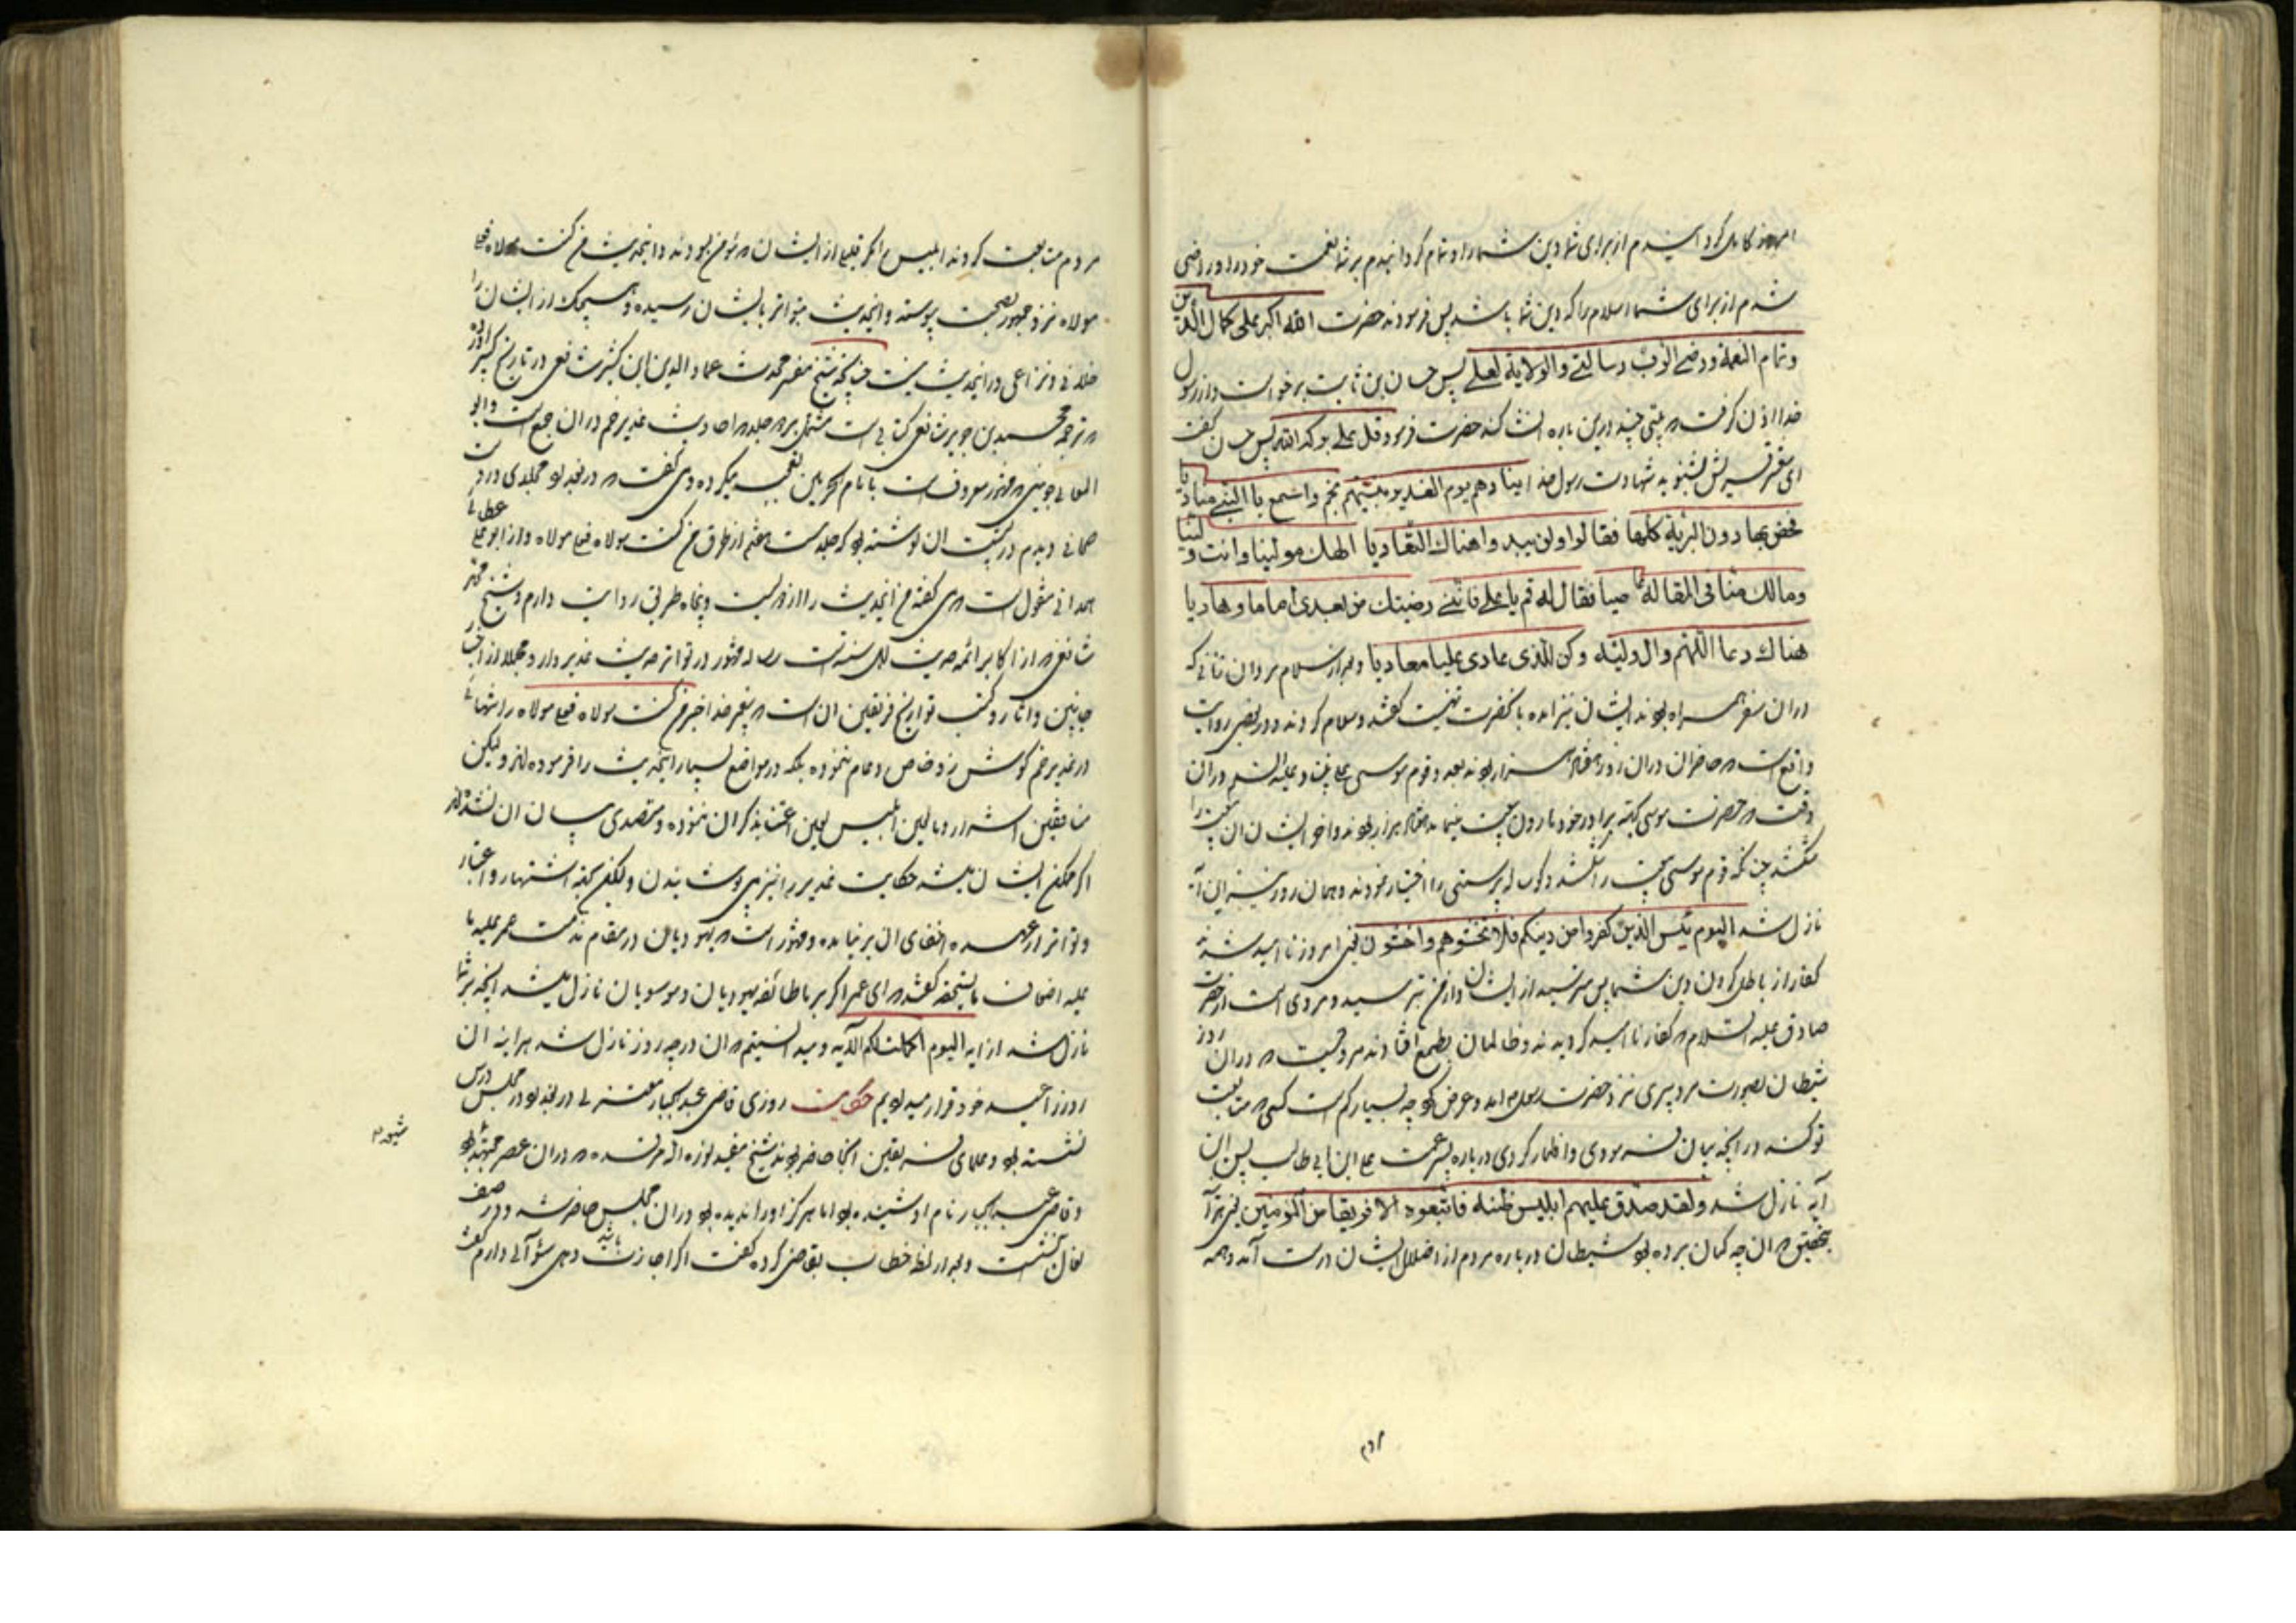 امروز کامل گردانیدم از برای شما دین شما را و تمام گردانیدم بر شما نعمت خود را و راضی
شدم از برای شما اسلام را که دین شما باشد پس فرمودند حضرت الله اکبر علی کمال الدین
وتمام النعمة ورضی الرب برسالتی والولایة لعلی پس حسان بن ثابت برخواست و از رسول
خدا اذن گرفت که بیتی چند درین باره انشا کند حضرت فرمود قل علی برکة الله پس حسان گفت
ای معشر قریش بشنوید شهادت رسول خدا ینادیهم یوم الغدیر نبیهم بخم واسمع بالنبی منادیا
فخص بها دون البریة کلها فقالوا ولن یبدوا هناك التعادیا الهك مولینا وانت ولینا
ومالك منا فی المقالة عاصیا فقال له قم یا علی فاننی رضیتك من بعدی اماما وهادیا
هناك دعا اللهم وال ولیه وکن للذی عادی علیا معادیا و بعد از سلام مردان زنانی که
در آن سفر همراه بودند ایشان نیز آمده به آنحضرت تهنیت گفتند و سلام کردند و در بعضی روایت
واقع است که حاضران در آن روز هفتاد هزار بودند بعدد قوم موسی علی نبینا و علیه السلم در آن
وقت که حضرت موسی بجهة برادر خود هارون بیعت میستاند هفتاد هزار بودند و آخر ایشان آن بیعت را
شکستند چنانکه قوم موسی بیعت را شکستند و گوساله پرستی را اختیار نمودند و همان روز نیز این آیه
نازل شد الیوم یئس الذین کفروا من دینکم فلا تخشوهم واخشون یعنی امروز ناامید شدند
کفار از باطل کردن دین شما پس مترسید از ایشان و از من بترسید و مروی است از حضرت
صادق علیه السلام که کفار ناامید گردیدند و ظالمان بطمع افتادند مرویست که در آن روز
شیطان بصورت مرد پیری نزد حضرت رسول آمد و عرض کرد چه بسیار کم است کسی که متابعت
تو کند در آنچه بیان فرمودی و اظهار کردی درباره پسر عمت علی ابن ابی طالب پس این
آیه نازل شد ولقد صدق علیهم ابلیس ظنه فاتبعوه الا فریقا من المؤمنین یعنی هر آ
بتحقیق که آن چه گمان برده بود شیطان درباره مردم از اضلال ایشان درست آمد و همه
مردم
مردم متابعت کردند ابلیس را مگر قلیلی از ایشان که مؤمن بودند و اینحدیث من کنت مولاه فعلی
مولاه نزد جمهور بصحت پیوسته و اینحدیث بتواتر بایشان رسیده و هیچیک از ایشان را
خلافی و نزاعی در اینحدیث نیست چنانکه شیخ مفسر محدث عماد الدین ابن کثیر شافعی در تاریخ کبیر آورده
که ترجمه محمد بن جریر شافعی کتابی است مشتمل بر دو جلد که احادیث غدیر خم در آن جمع است و ابو
المعالی جوینی که مشهور و معروف است با امام الحرمین تعجب میکرده و می گفت که در بغداد مجلدی در دست
صحافی دیدم در پشت آن نوشته بود که جلد بیست هشتم از طرق من کنت مولاه فعلی مولاه و از ابو علی عطائی
همدانی منقول است که می گفته من اینحدیث را از دویست و پنجاه طریق روایت دارم و شیخ محمد
شافعی که از اکابر ائمه حدیث اهل سنت است رساله مشهور در تواتر حدیث غدیر دارد و مجملا از اخبار
جانبین و آثار و کتب تواریخ فریقین آن است که پیغمبر خدا خبر من کنت مولاه فعلی مولاه را تنها نه
در غدیر خم گوش زد خاص و عام ننموده بلکه در مواضع بسیار اینحدیث را فرموده اند ولیکن
منافقین اشرار و تابعین ابلیس لعین اعتنا بذکر آن ننموده و متصدی بیان آن نشده اند
اگر ممکن ایشان میشد حکایت غدیر را نیز می پوشانیدند ولیکن بجهة اشتهار و اعتبار
و تواتر از عهده اخفای آن برنیامده و مشهور است که یهودیان در مقام مذمت عمر علیه ما
علیه اضعاف ما یستحقه گفتند که ای عمر اگر بر ما طائفه یهودیان و موسویان نازل میشد آنچه بر شما
نازل شد از آیه الیوم اکملت لکم الآیه و میدانستیم که آن در چه روز نازل شد هر آینه آن
روز را عید خود قرار میدادیم حکایت روزی قاضی عبد الجبار معتزلی در بغداد در مجلس درس
نشسته بود و علمای فریقین آنجا حاضر بودند شیخ مفید نور الله مرقده که در آن عصر مجتهد بود
شیعه م
و قاضی عبد الجبار نام او شنیده بود اما هرگز او را ندیده بود در آن مجلس حاضر شد و در صف
نعال نشست و بعد از لحظه خطاب بقاضی کرده گفت اگر اجازت باشد دهی سؤالی دارم گفت